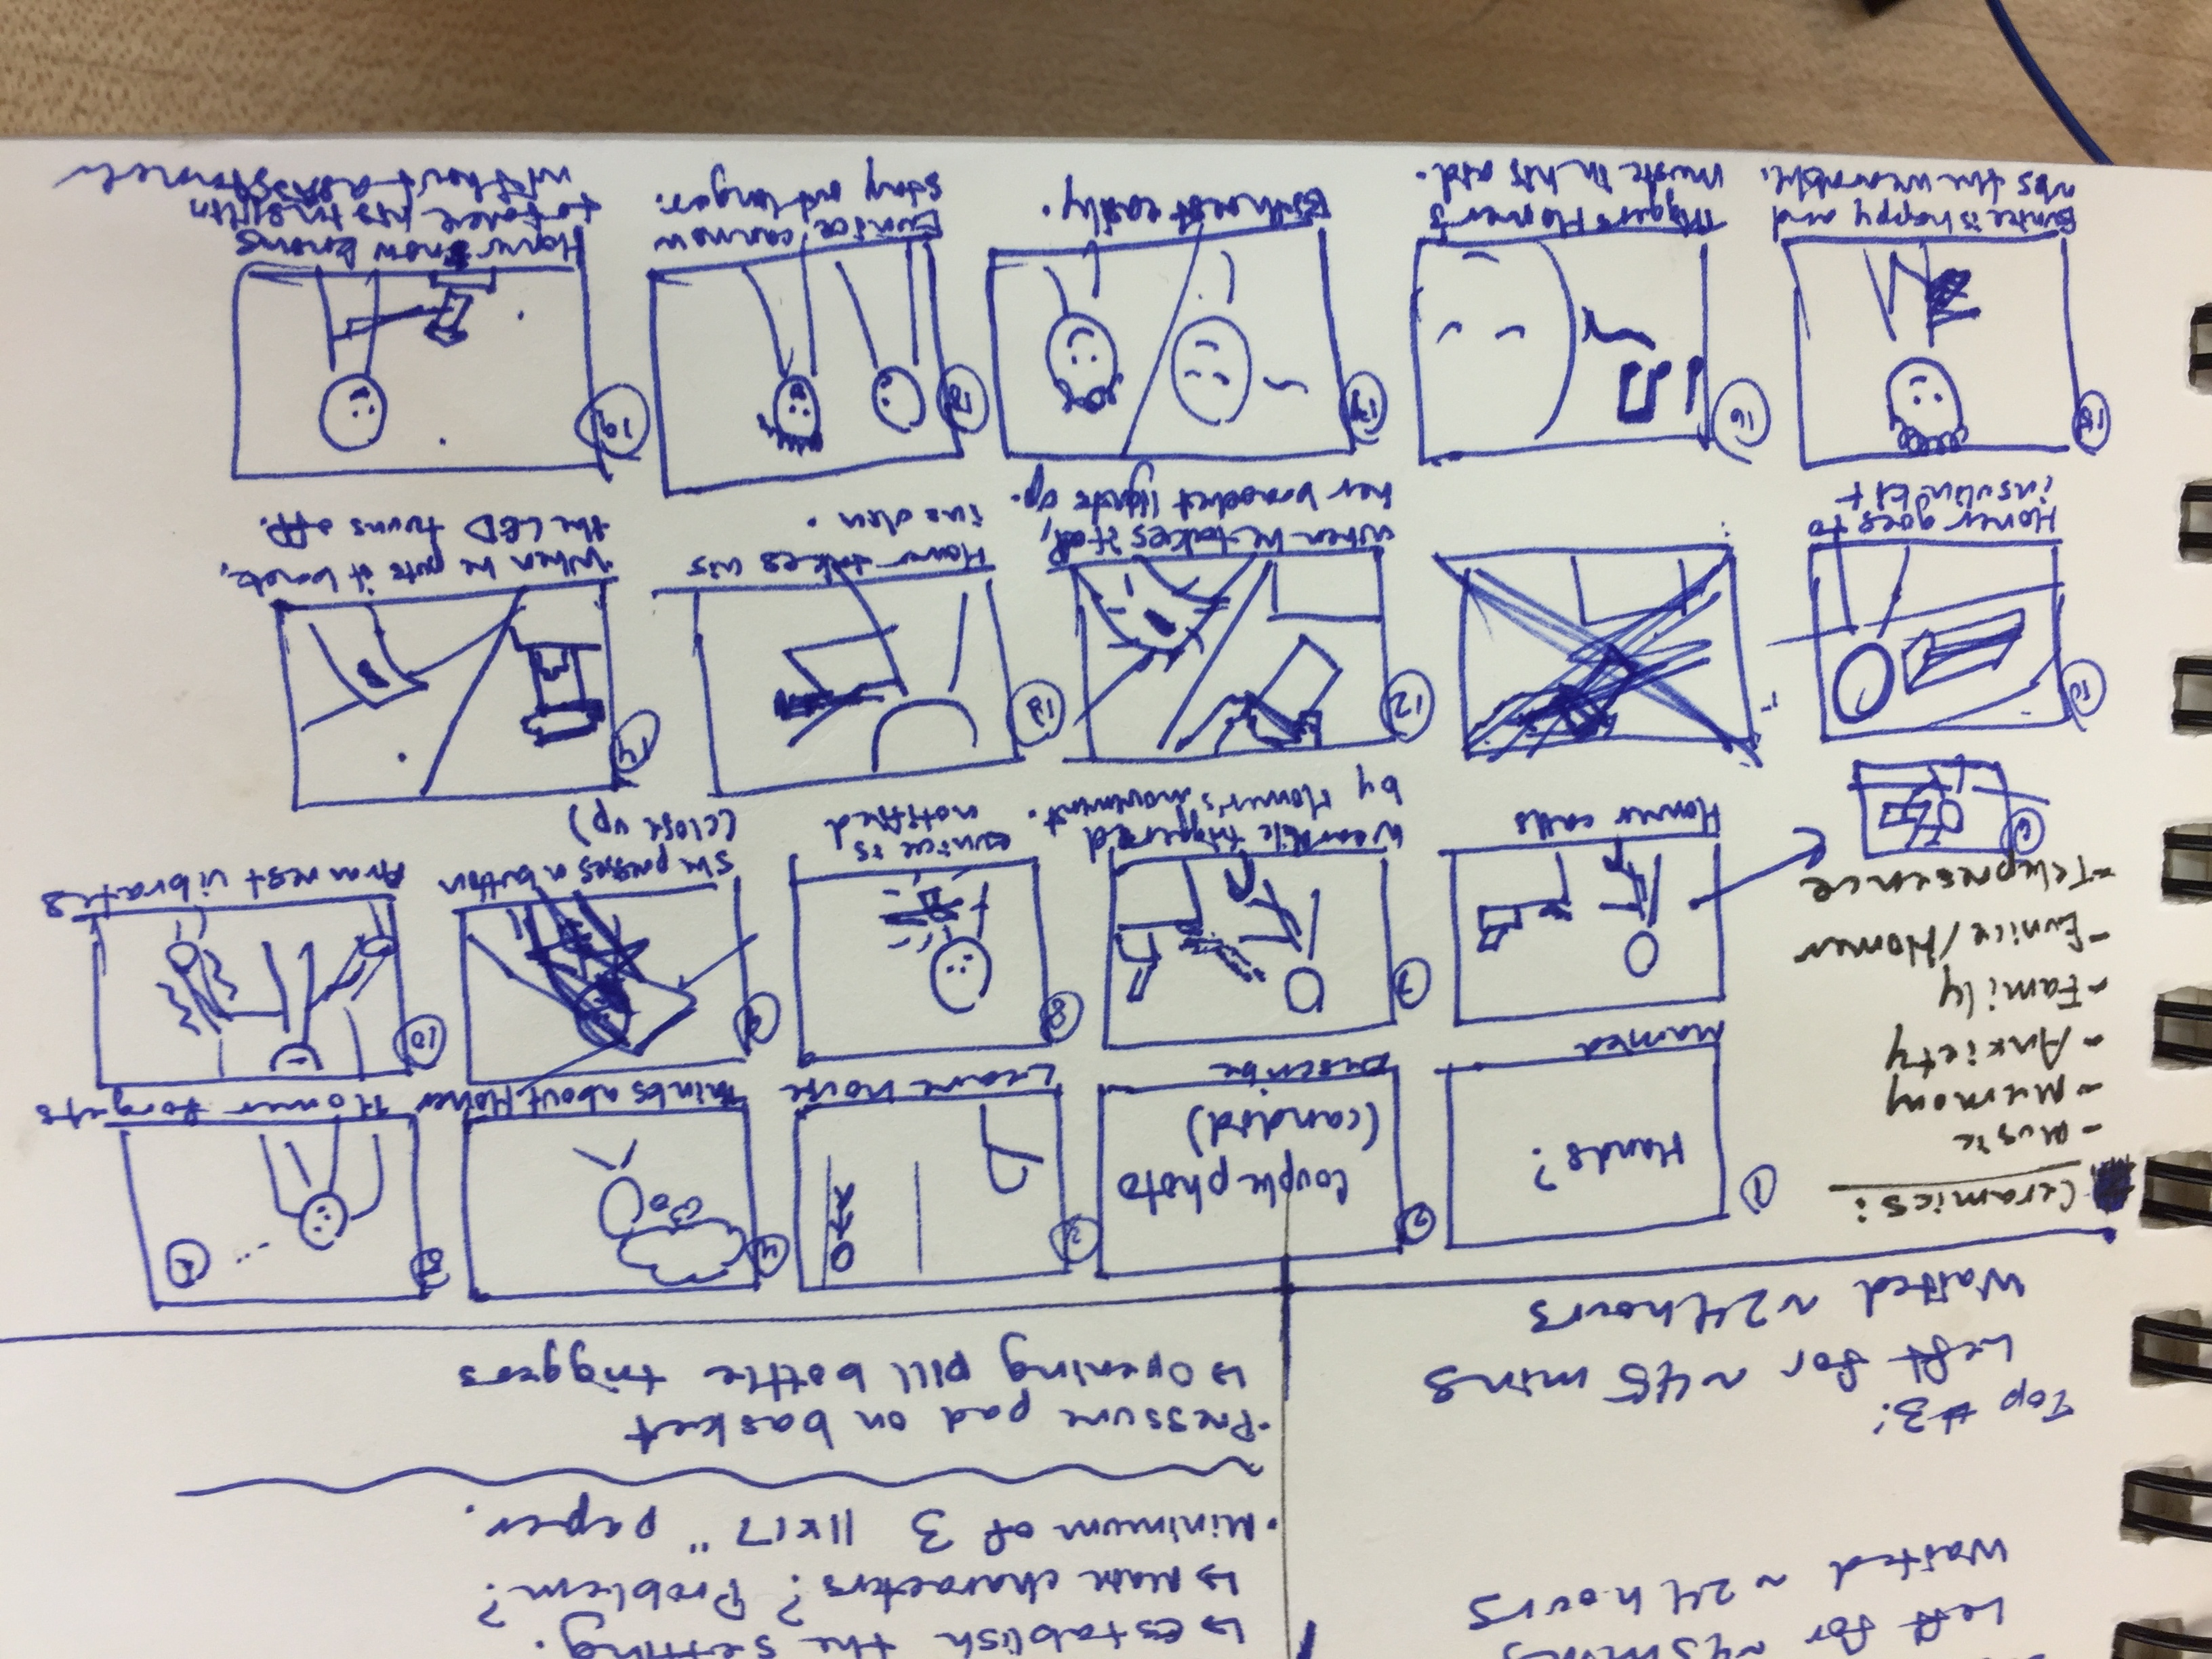 Left for ~45 mins
Waited ~24 hours
Top #3:
Left for ~45 mins
Waited ~24 hours
↳ Establish the setting.
↳ Main characters? Problem?
• Minimum of 3 11x17" paper.
• Pressure pad on basket
↳ Opening pill bottle triggers
Ceramics:
- Music
- Memory
- Anxiety
- Family
- Eunice/Homer
- Telepresence
1
Hands?
Married
2
Couple photo
(candid)
Describe
3
Leave house
4
Thinks about Homer
5
Homer forgets
6
Homer calls
7
Wearable triggered
by Homer's movement.
8
Eunice is
notified
9
She presses a button
(close up)
10
Arm rest vibrates
Homer goes to
insulin kit
12
When he takes it off,
her bracelet lights up.
13
Homer takes his
insulin.
14
When he puts it back,
the LED turns off.
15
Eunice is happy and
rubs the wearable.
16
Triggers Homer's
music in his aid.
17
Both rest easily.
18
Eunice can now
stay out longer.
19
Homer now knows
to take his insulin
without assistance